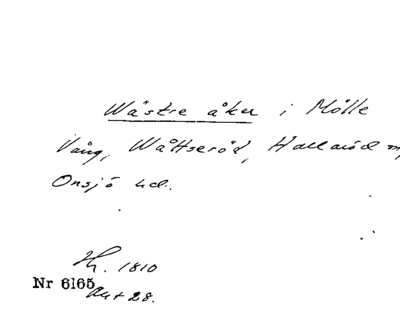 Wästre åker i Mölle
Vång, Wåttseröd, Hallaröd
Onsjö hd.
H. 1810
Nr 6165
Akt 28.